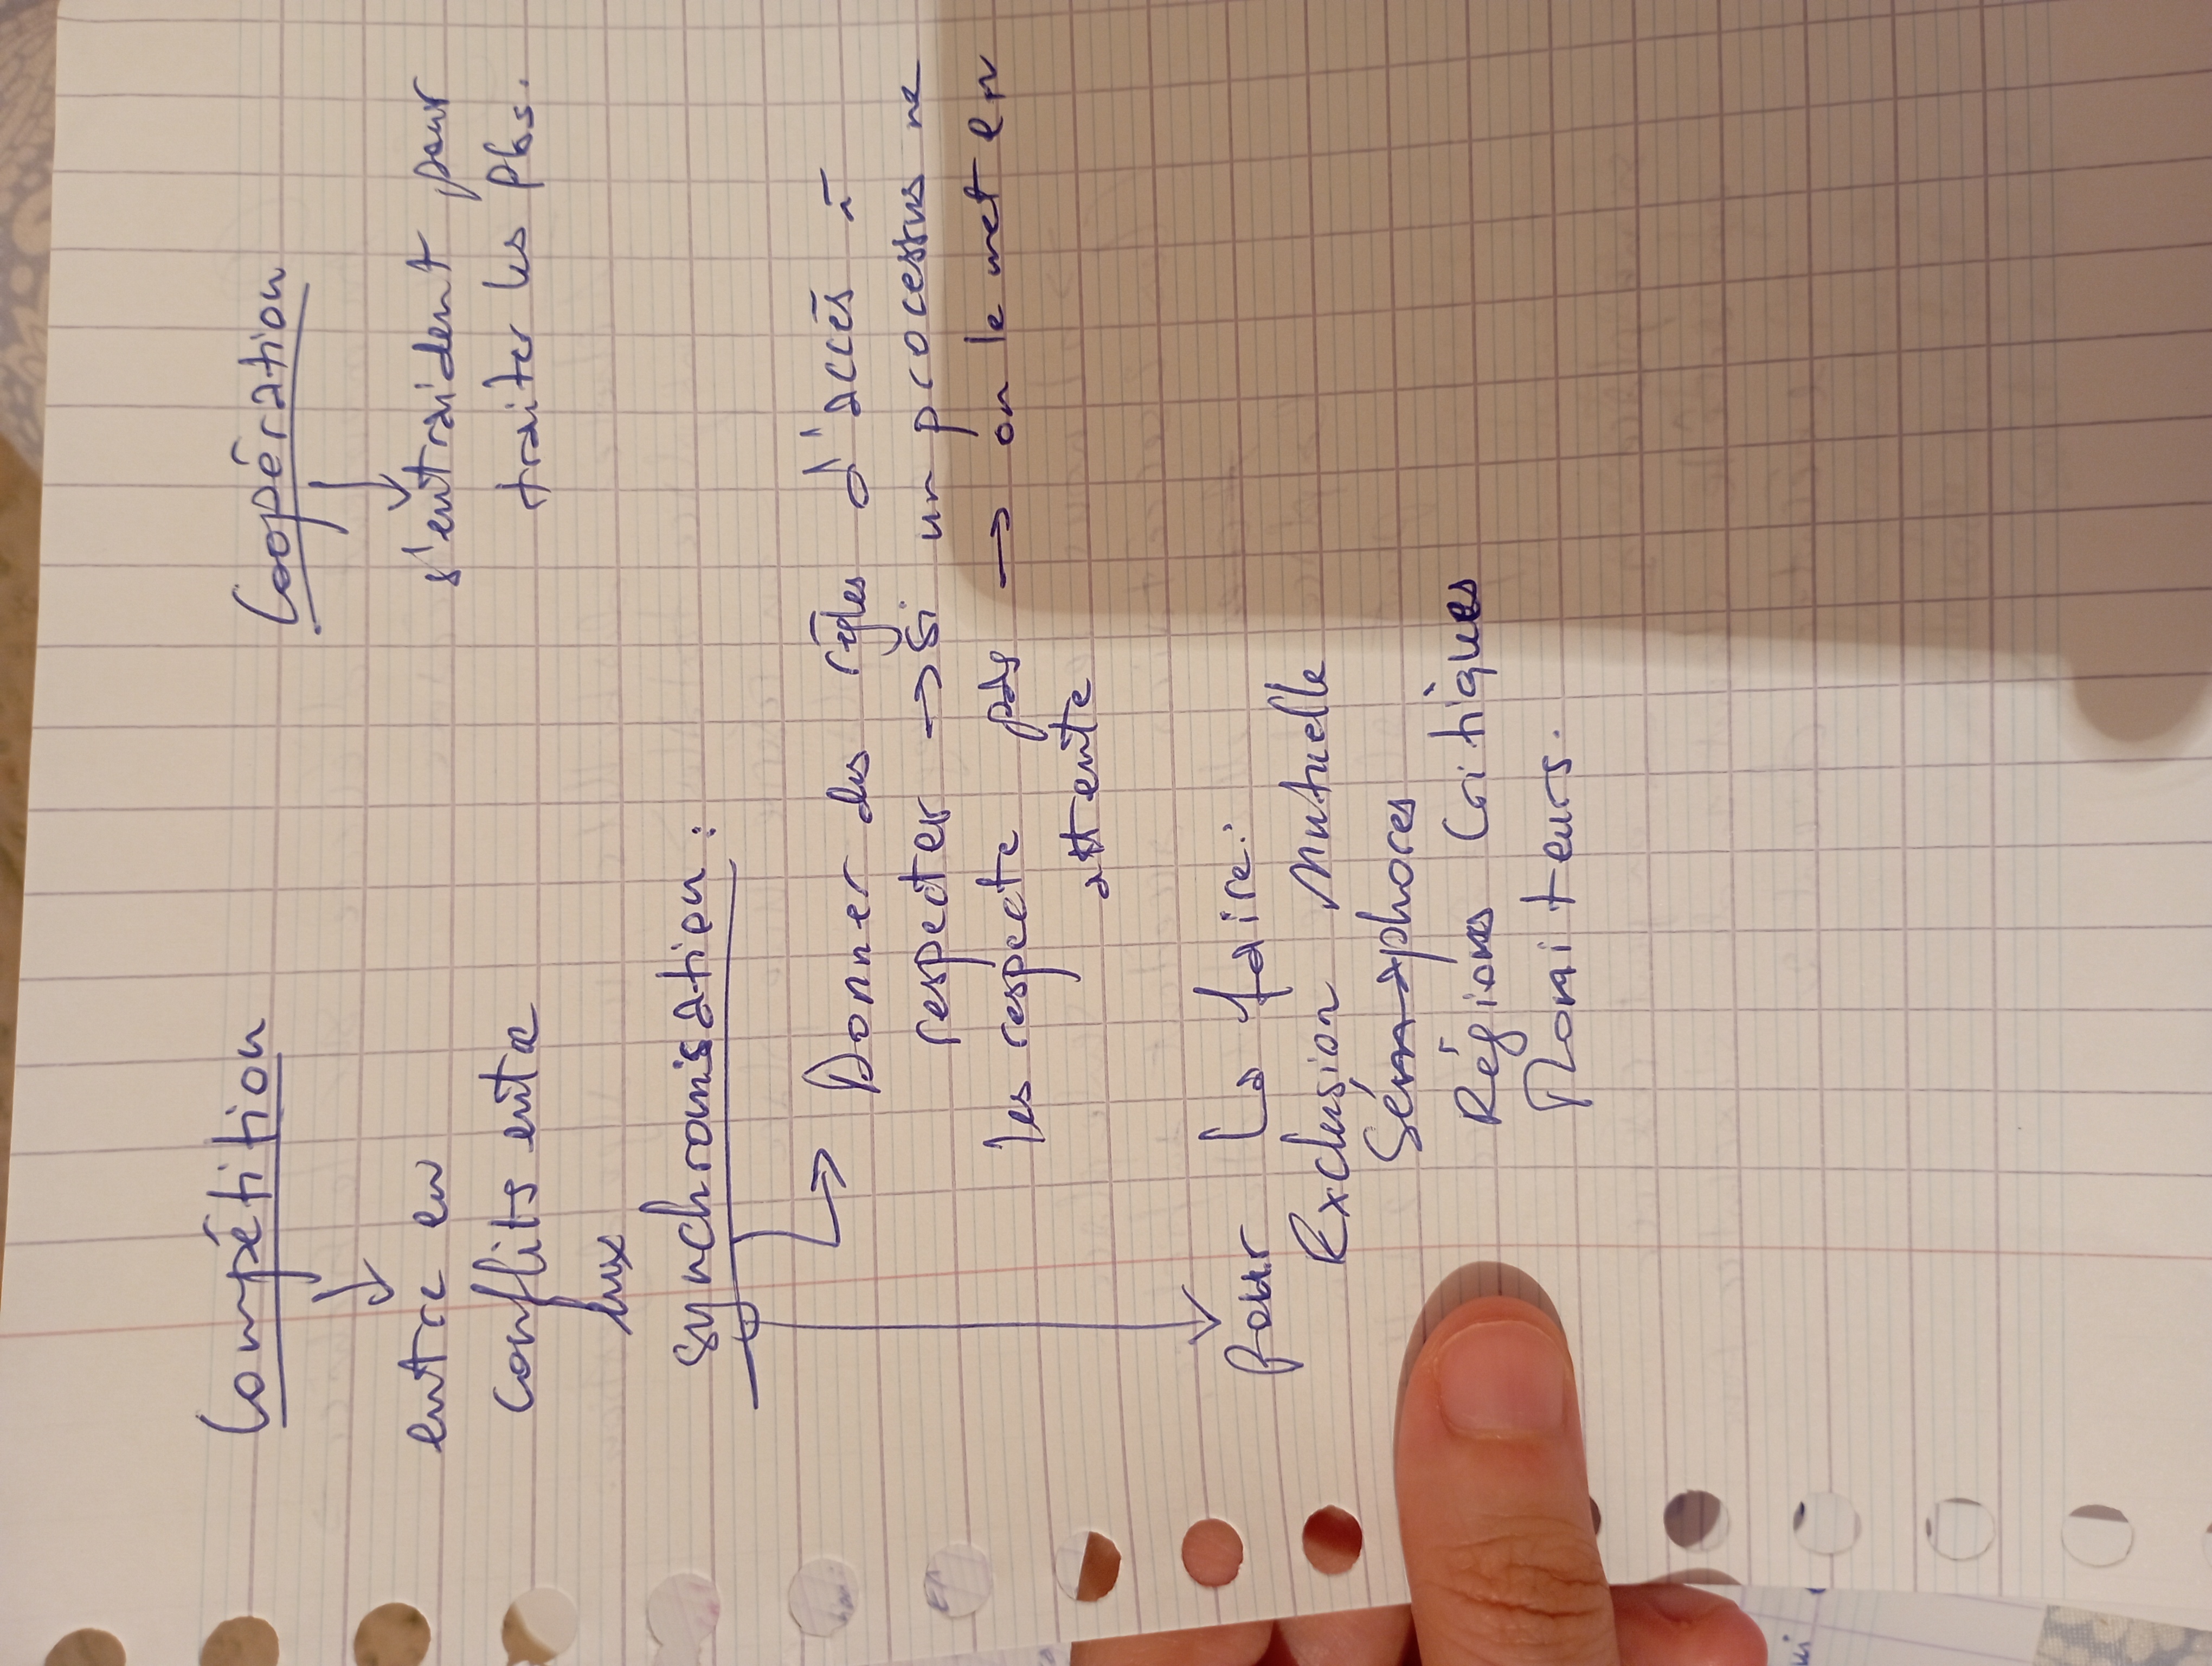 Compétition
Coopération
entre en
conflits entre
eux
s'entraident pour
traiter les Pbs.
synchronisation :
Donner des règles d'accès à
respecter → si un processus ne
les respecte pas → on le met en
attente
pour la faire :
Exclusion Mutuelle
Sémaphores
Régions Critiques
Moniteurs.